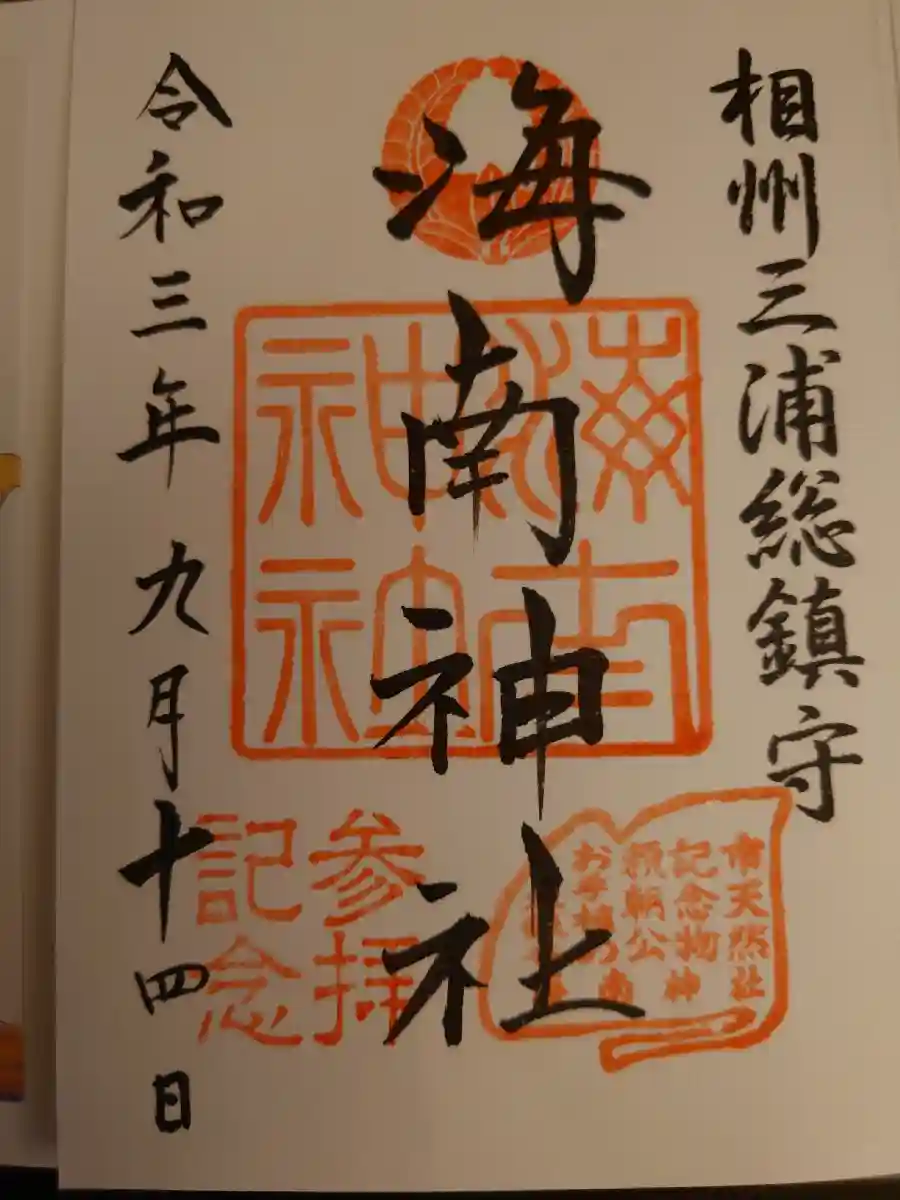 相州三浦総鎮守
海南神社
海南
神社
市天然
記念物
頼朝公
お手植の
海南神社
参拝
記念
令和三年九月十四日